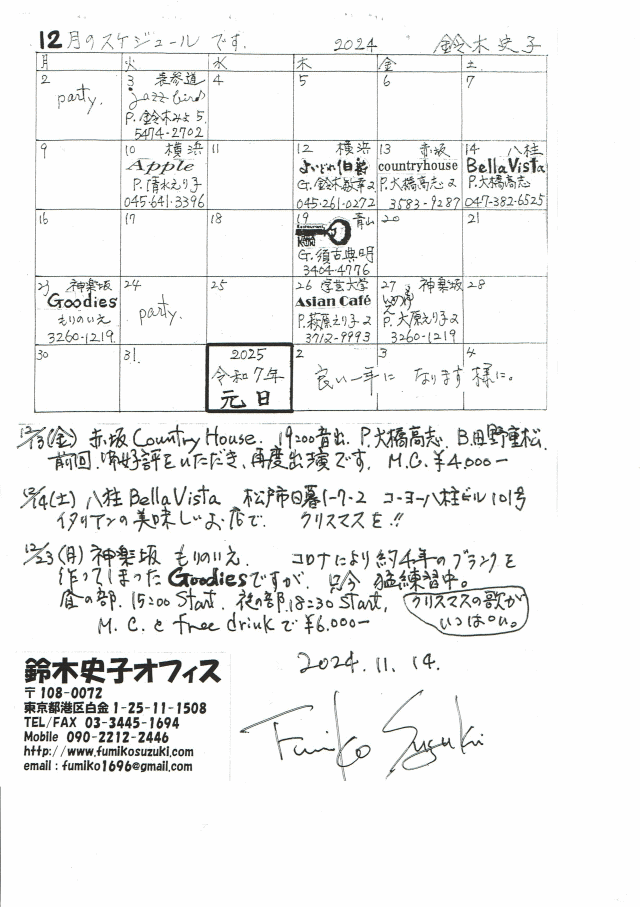 12月のスケジュール です. 2024 鈴木史子
月 火 水 木 金 土
2 party.
3 表参道
jazz bird
P. 鈴木みよ 5.
5474-2702
4
5
6
7
9
10 横浜
Apple
P. 清水えり子
045-641-3396
11
12 横浜
よいどれ伯爵
G. 鈴木敏幸2
045-261-0272
13 赤坂
countryhouse
P. 大橋高志 2
3583-9287
14 八柱
BellaVista
P. 大橋高志
047-382-6525
16
17
18
19 青山
G. 須古典明
3404-4776
20
21
23 神楽坂
Goodies
もりのいえ
3260-1219
24
party.
25
26 学芸大学
Asian Café
P. 萩原えり子 2
3712-9993
27 神楽坂
もりのいえ
P. 大原えり子 2
3260-1219
28
30
31.
2025
令和7年
元日
2 3 4
良い一年に なります 様に。
12/13(金) 赤坂 Country House. 19:00音出. P.大橋高志. B.田野重松.
前回、御好評をいただき、再度出演です. M.C. ¥4,000-
12/14(土) 八柱 BellaVista 松戸市日暮1-7-2 コーヨー八柱ビル101号
イタリアンの美味しいお店で. クリスマスを!!
12/23(月) 神楽坂 もりのいえ. コロナにより約4年のブランクを
作ってしまった Goodiesですが、只今 猛練習中。
昼の部. 15:00 Start. 夜の部. 18:30 Start. クリスマスの歌が
いっぱい。
M.C. と free drink で ¥6.000-
鈴木史子オフィス
〒108-0072
東京都港区白金1-25-11-1508
TEL/FAX 03-3445-1694
Mobile 090-2212-2446
http://www.fumikosuzuki.com
email : fumiko1696@gmail.com
2024. 11. 14.
Fumiko Suzuki